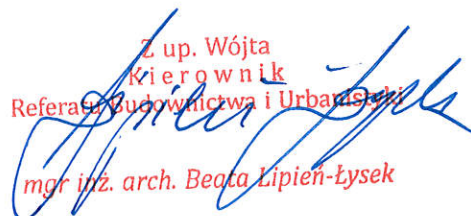 Z up. Wójta
Kierownik
Referatu Budownictwa i Urbanistyki
mgr inż. arch. Beata Lipień-Łysek